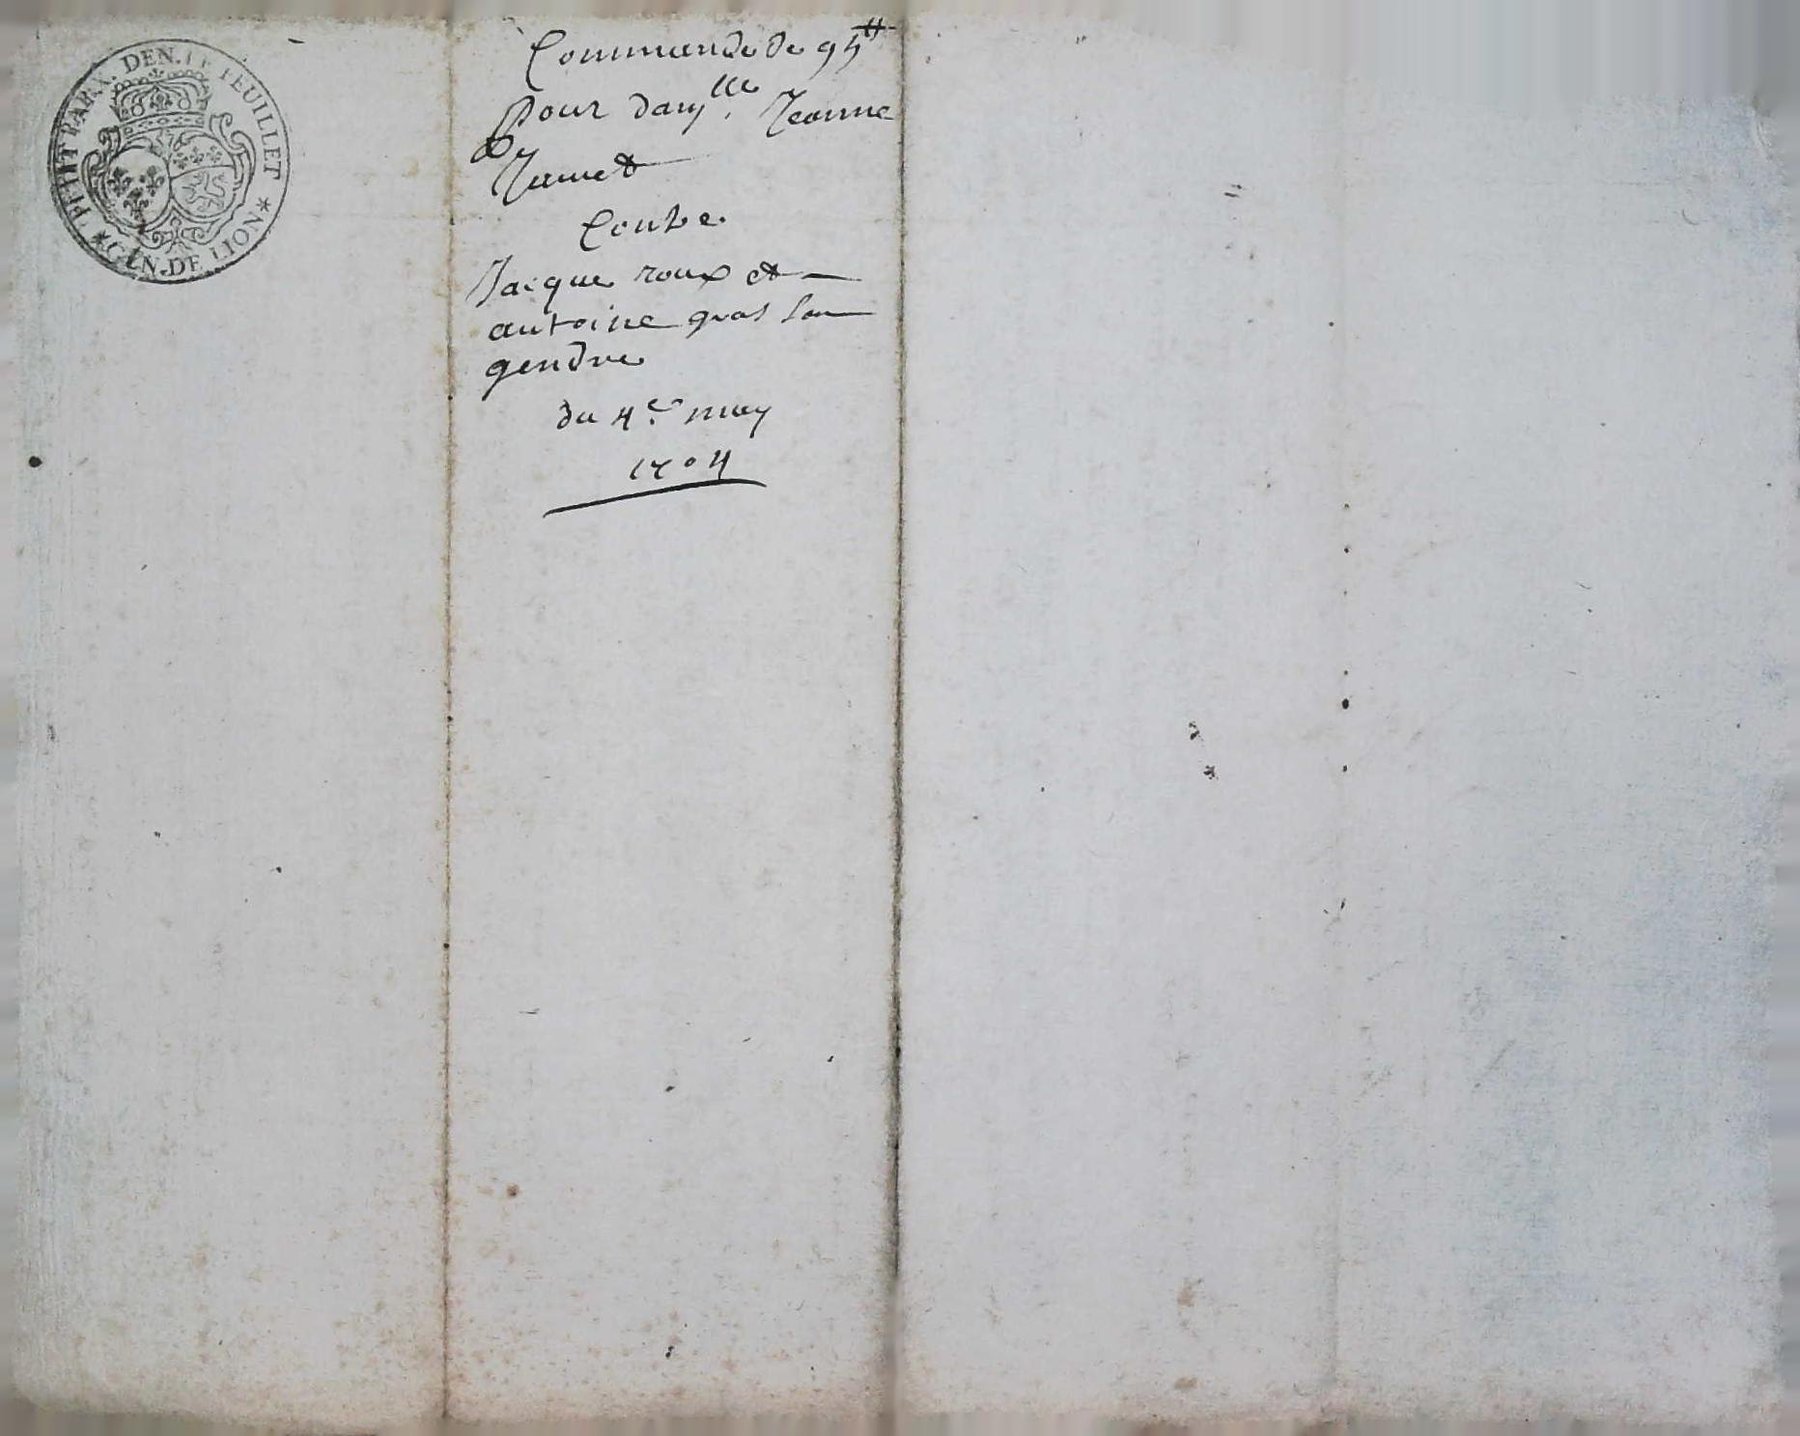 PETIT PAR. DEN. LE FEUILLET * GEN. DE LION *
Commande de 95 ₶
pour dam.lle Jeanne
Jamet
Contre
Jacque roux et
antoine gras son
gendre
du 4.e may
1704